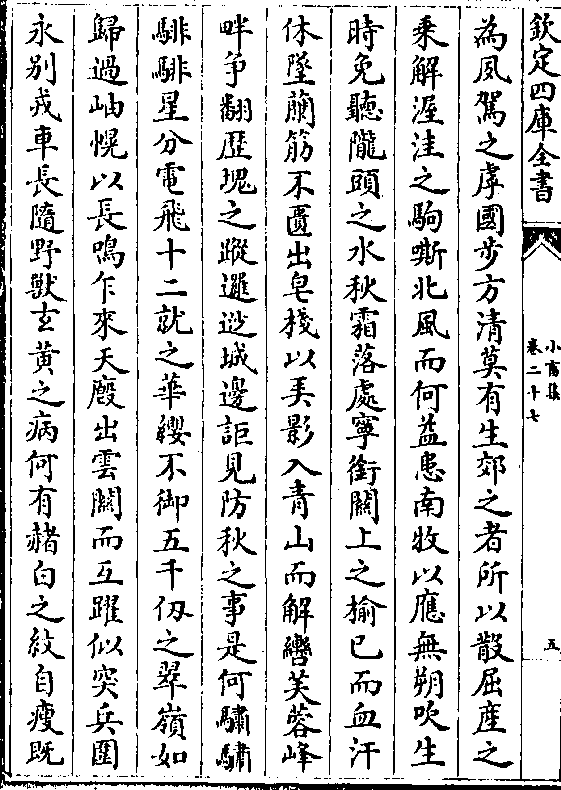 欽定四庫全書
小畜集
卷二十七
五
為夙駕之虖國步方清莫有生郊之者所以散屈産之
乗解渥洼之駒嘶北風而何益患南牧以應無朔吹生
時免聽隴頭之水秋霜落處寧銜關上之榆已而血汗
休墜蘭筋不匱出皂棧以弄影入青山而解轡芙蓉峰
畔争翻歴塊之蹤邐迆城邊詎見防秋之事是何驌驌
騑騑星分電飛十二就之華纓不御五千仭之翠嶺如
歸過岫幌以長鳴乍來天廏出雲關而互躍似突兵圍
永别戎車長隨野獸玄黄之病何有赭白之紋自瘦既